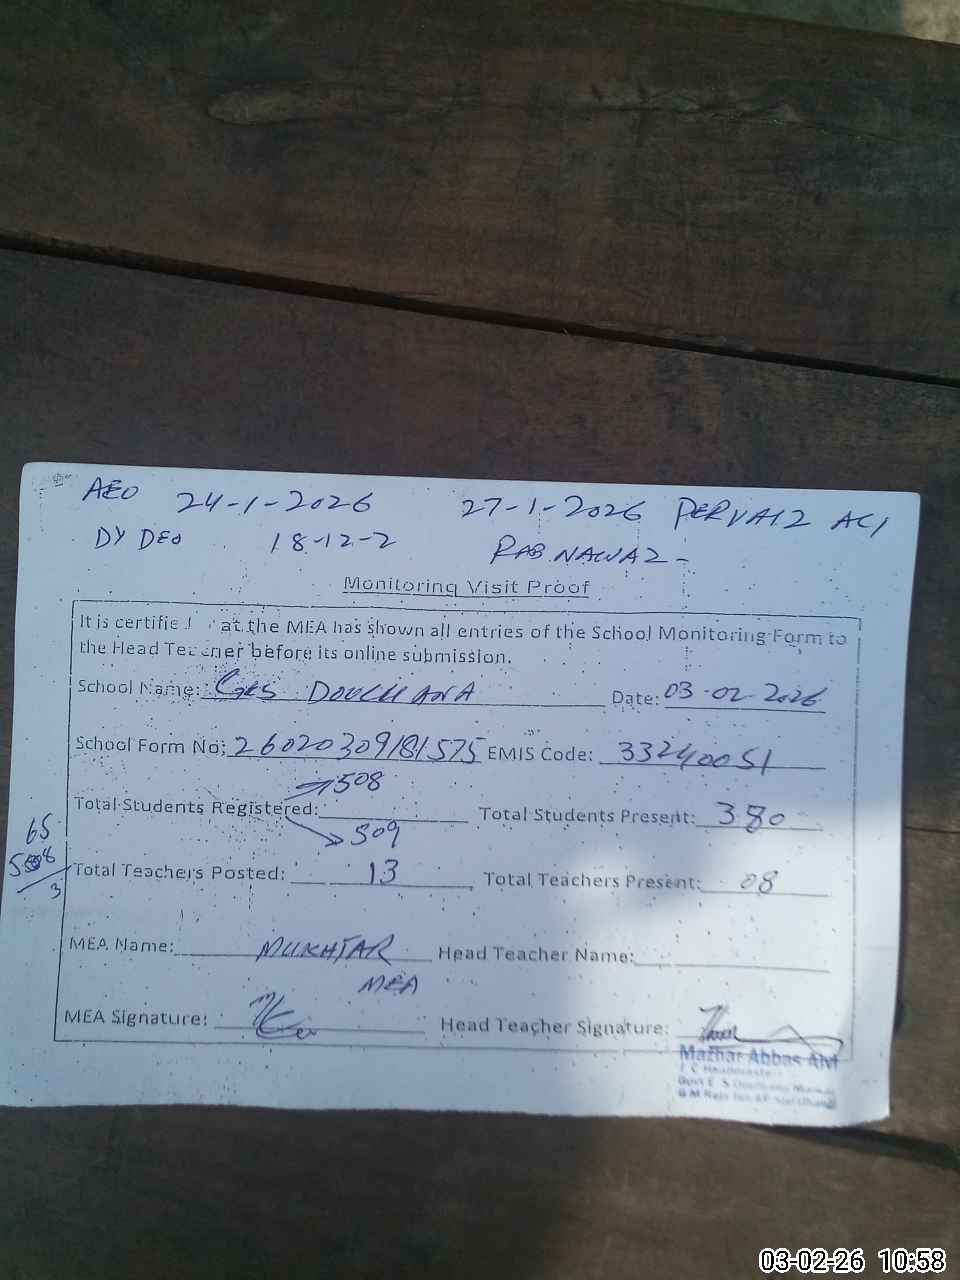 AEO 24-1-2026 27-1-2026 PERVAIZ ALI
DY DEO 18-12-2 RAB NAWAZ -
Monitoring Visit Proof
It is certified that the MEA has shown all entries of the School Monitoring Form to
the Head Teacher before its online submission.
School Name: GES DOULUANA Date: 03-02-2026
School Form No: 26020309181575 EMIS Code: 33240051
508
Total Students Registered: Total Students Present: 380
509
65
Total Teachers Posted: 13 Total Teachers Present: 08
3
MEA Name: MUKHTAR Head Teacher Name:
MEA
MEA Signature: Head Teacher Signature:
Mazhar Abbas
Headmaster
Govt E/S
03-02-26 10:58